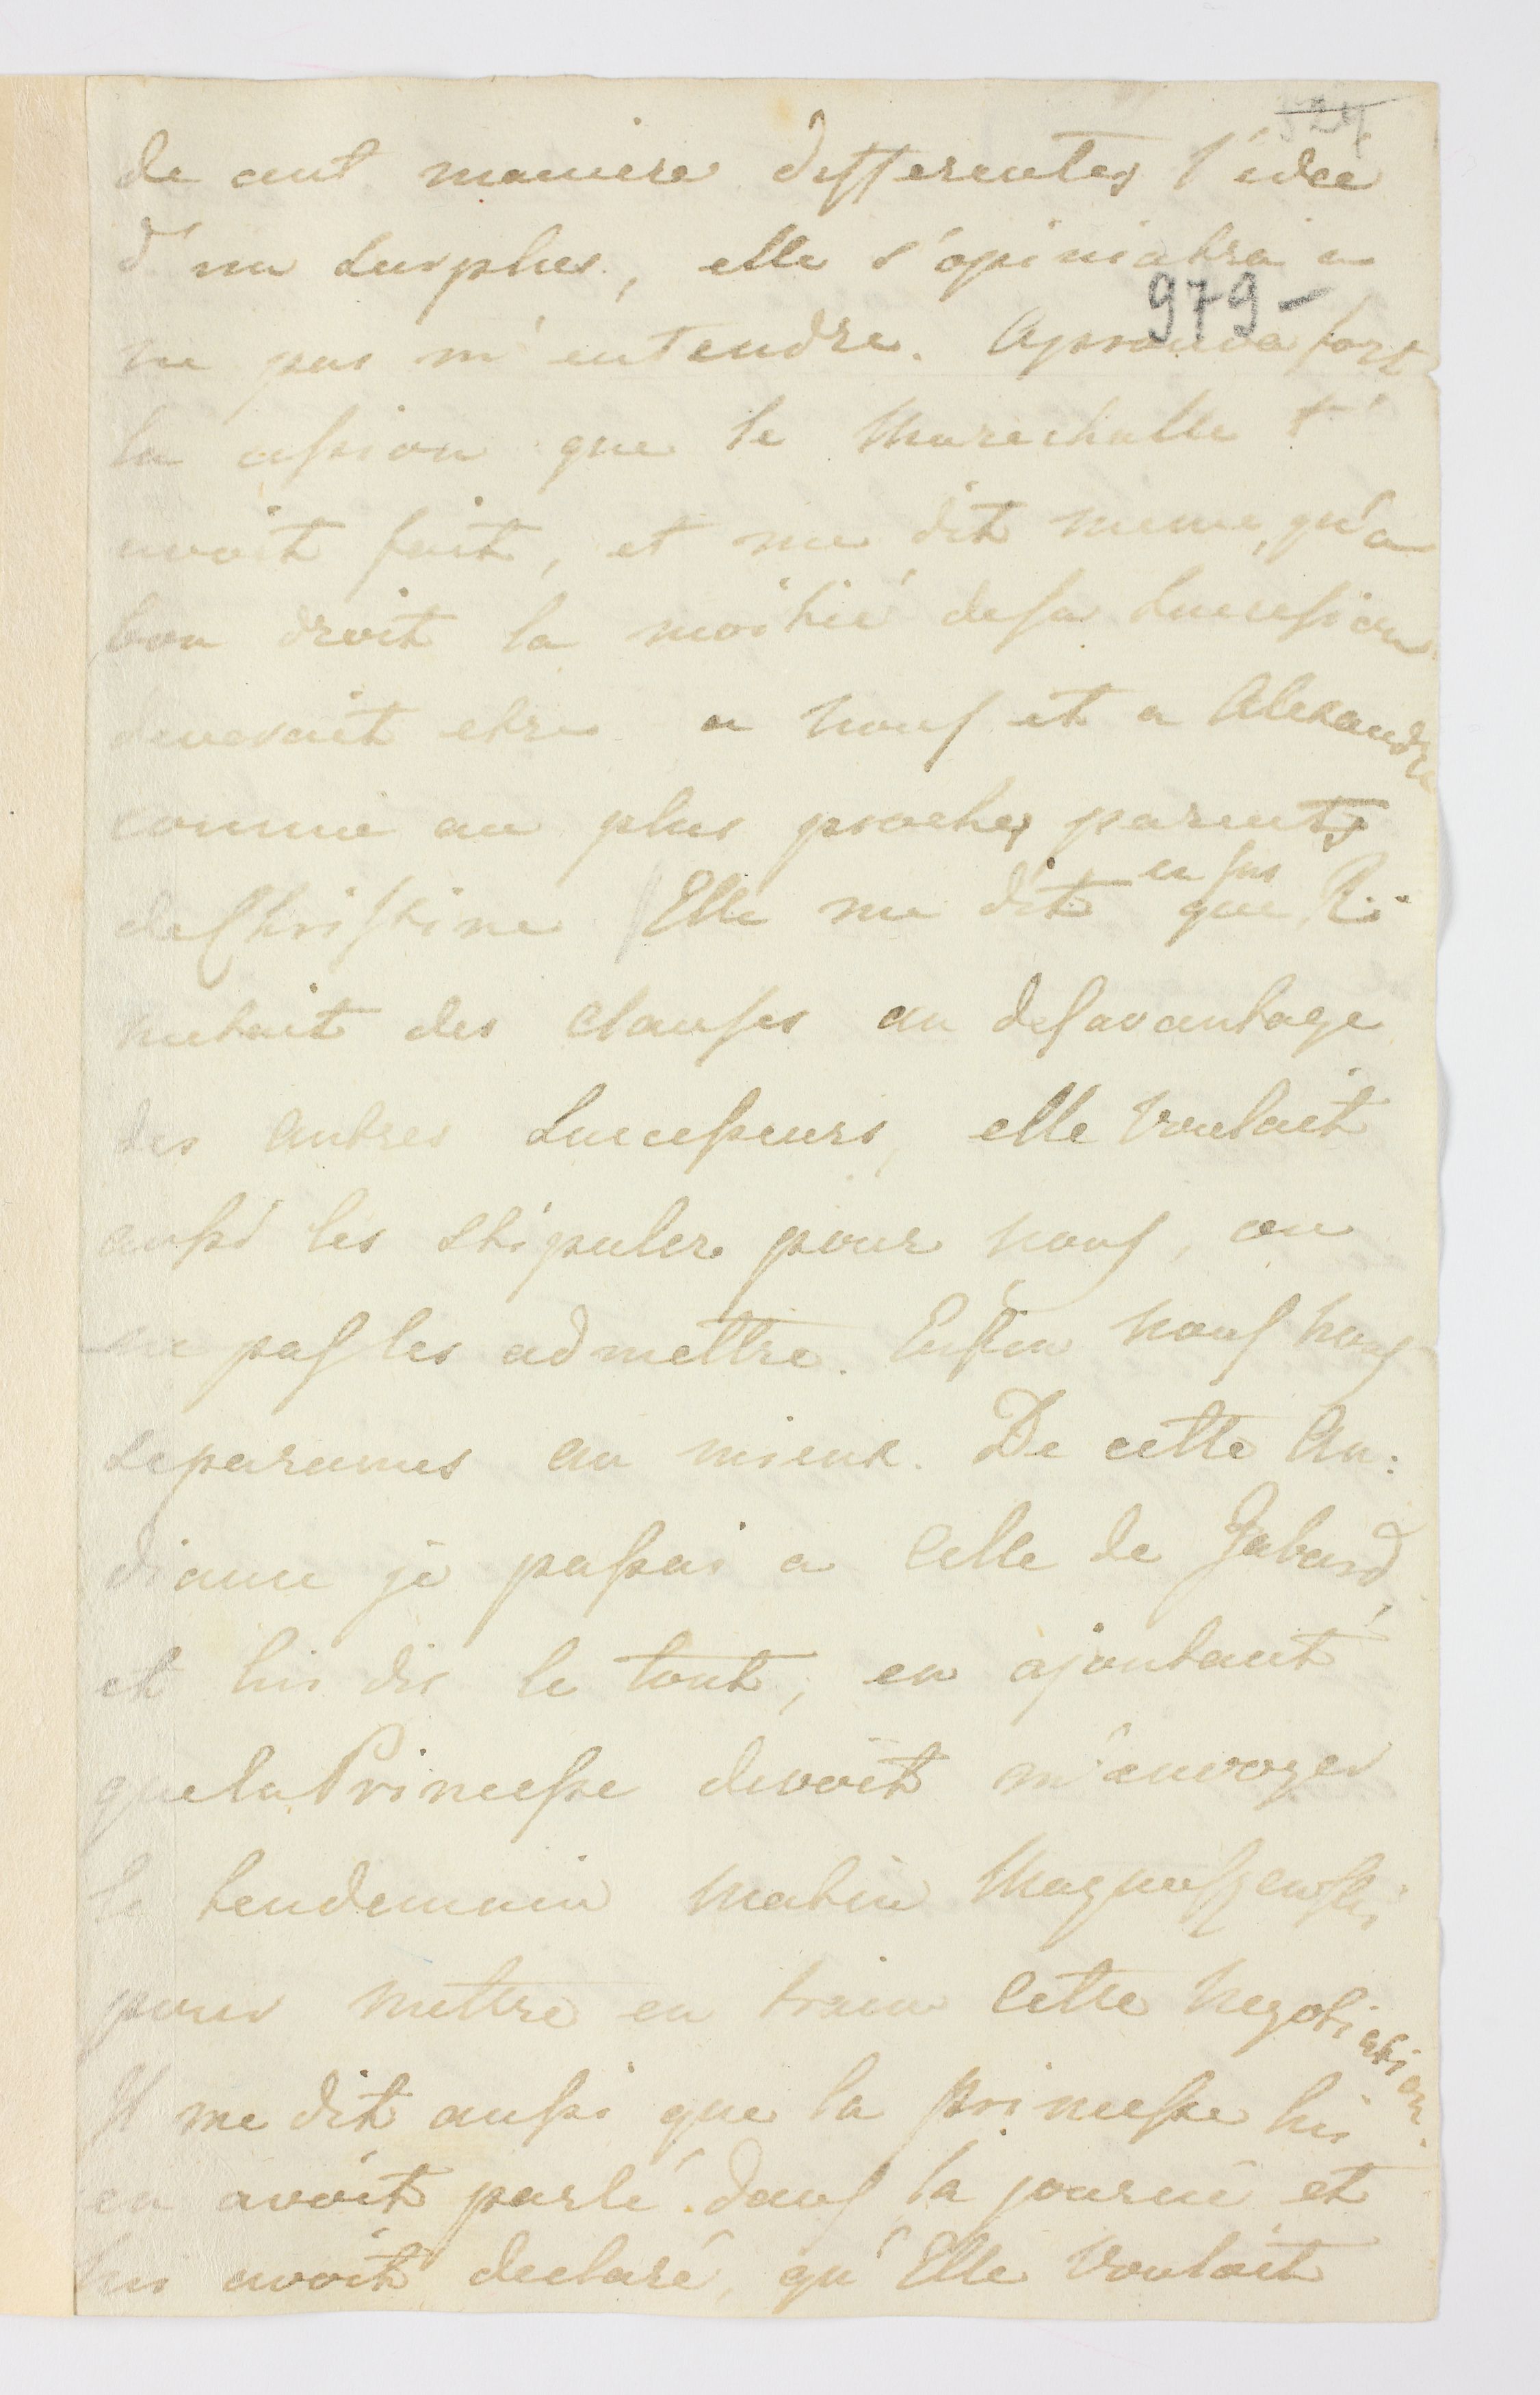 527
de cent maniere differentes l'idee
d'un surplus, elle s'opiniatra a
979-
ne pas m'entendre. Aprouva fort
la cession que le Marechalle t'
avoit fait, et me dit meme, qu'a
bon droit la moitié de sa Succession
deveroit etre a nous et a Alexandre
comme au plus proches parents
de Christine Elle me dit en sus que R:
mettait des clauses au desavantage
des autres Successeurs, elle voulait
aussi les stipuler pour nous, ou
ne pas les admettre. Enfin nous nous
separames au mieux. De cette Au:
diance je passai a celle de Gabard,
et lui dis le tout, en ajoutant
que la Princesse devoit m'envoyer
le lendemain matin Magnuszewski
pour mettre en train cette Negotiation.
Il me dit aussi que la princesse lui
en avoit parlé dans la journé et
lui avoit declaré, qu'Elle vouloit